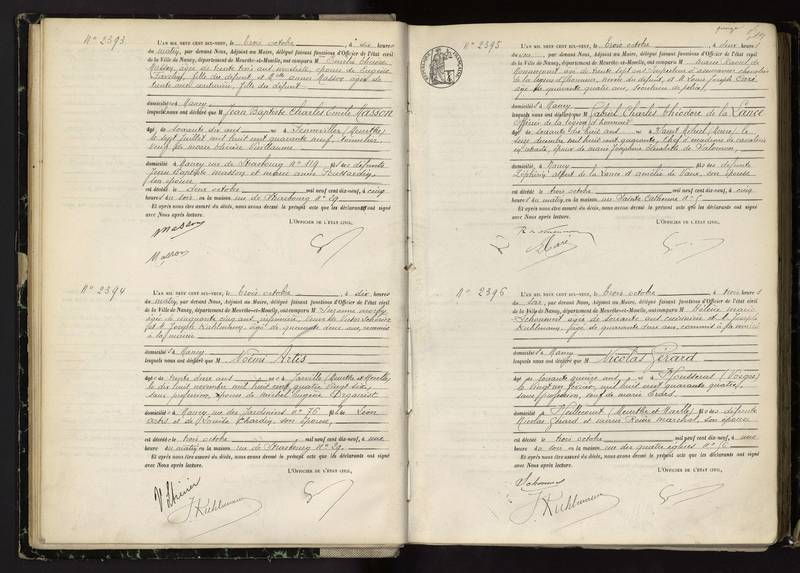 N° 2393
L'AN MIL NEUF CENT DIX-NEUF, le trois octobre, à dix heures
du matin, par devant Nous, Adjoint au Maire, délégué faisant fonctions d'Officier de l'état civil
de la Ville de Nancy, département de Meurthe-et-Moselle, ont comparu M Emilie
Masson, âgée de trente trois ans modiste, épouse de Eugène
fille du défunt, et Mlle Anna Masson âgée de
trente ans couturière, fille du défunt
domiciliés à Nancy
lesquels nous ont déclaré que M Jean Baptiste Charles Emile Masson
âgé de soixante dix ans né à (Meurthe)
le sept juillet mil huit cent quarante neuf, tonnelier,
veuf de Marie Thérèse Vuillaume
domicilié à Nancy rue de Strasbourg N° 119 fils des défunts
Jean Baptiste Masson et Marie Anne
son épouse
est décédé le deux octobre mil neuf cent dix-neuf, à cinq
heures du soir en la maison rue de Strasbourg N° 29
Et après nous être assuré du décès, nous avons dressé le présent acte que les déclarants ont signé
avec Nous après lecture.
L'OFFICIER DE L'ÉTAT CIVIL,
Masson
Masson
N° 2394
L'AN MIL NEUF CENT DIX-NEUF, le trois octobre, à dix heures
du matin, par devant Nous, Adjoint au Maire, délégué faisant fonctions d'Officier de l'état civil
de la Ville de Nancy, département de Meurthe-et-Moselle, ont comparu M Suzanne
âgée de cinquante cinq ans, infirmière, veuve de Victor
et Joseph Kuhlmann, âgé de quarante deux ans, commis
à la mairie
domiciliés à Nancy
lesquels nous ont déclaré que M Noëmi Artis
âgée de vingt deux ans née à Jarville (Meurthe et Moselle)
le dix huit novembre mil huit cent quatre vingt seize,
sans profession, épouse de Michel Eugène Organist
domiciliée à Nancy rue des Jardiniers N° 76 fille de Léon
Artis et de Chardin, son épouse,
est décédée le trois octobre mil neuf cent dix-neuf, à une
heure du matin en la maison rue de Strasbourg N° 29
Et après nous être assuré du décès, nous avons dressé le présent acte que les déclarants ont signé
avec Nous après lecture.
L'OFFICIER DE L'ÉTAT CIVIL,
J. Kuhlmann
N° 2395
L'AN MIL NEUF CENT DIX-NEUF, le trois octobre, à deux heures
du soir, par devant Nous, Adjoint au Maire, délégué faisant fonctions d'Officier de l'état civil
de la Ville de Nancy, département de Meurthe-et-Moselle, ont comparu M Marie Raoul de
âgé de trente sept ans inspecteur d'assurances, chevalier
de la légion d'honneur, du défunt, et M Louis Joseph Caré
âgé de quarante quatre ans,
domiciliés à Nancy
lesquels nous ont déclaré que M Gabriel Charles Théodore de la Lance
Officier de la légion d'honneur
âgé de soixante dix huit ans né à Saint Mihiel (Meuse) le
décembre mil huit cent quarante, Chef d'escadrons de cavalerie
en retraite, époux de Marie Joséphine Elisabeth de
domicilié à Nancy fils des défunts
Albert de la Lance et Amélie de Vaux, son épouse
est décédé le trois octobre mil neuf cent dix-neuf, à cinq
heures du matin, en la maison rue Sainte Catherine N° 5
Et après nous être assuré du décès, nous avons dressé le présent acte que les déclarants ont signé
avec Nous après lecture.
L'OFFICIER DE L'ÉTAT CIVIL,
L. Caré
N° 2396
L'AN MIL NEUF CENT DIX-NEUF, le trois octobre, à trois heures
du soir, par devant Nous, Adjoint au Maire, délégué faisant fonctions d'Officier de l'état civil
de la Ville de Nancy, département de Meurthe-et-Moselle, ont comparu M Marie
âgée de soixante ans et Joseph
Kuhlmann, âgé de quarante deux ans, commis à la mairie
domiciliés à Nancy
lesquels nous ont déclaré que M Nicolas Gérard
âgé de soixante quinze ans né à Housseras (Vosges)
le vingt un février mil huit cent quarante quatre,
sans profession, veuf de Marie
domicilié à (Meurthe et Moselle) fils des défunts
Nicolas Gérard et Marie Rosine Marchal, son épouse
est décédé le trois octobre mil neuf cent dix-neuf, à une
heure du soir en la maison rue des quatre églises N°
Et après nous être assuré du décès, nous avons dressé le présent acte que les déclarants ont signé
avec Nous après lecture.
L'OFFICIER DE L'ÉTAT CIVIL,
J. Kuhlmann